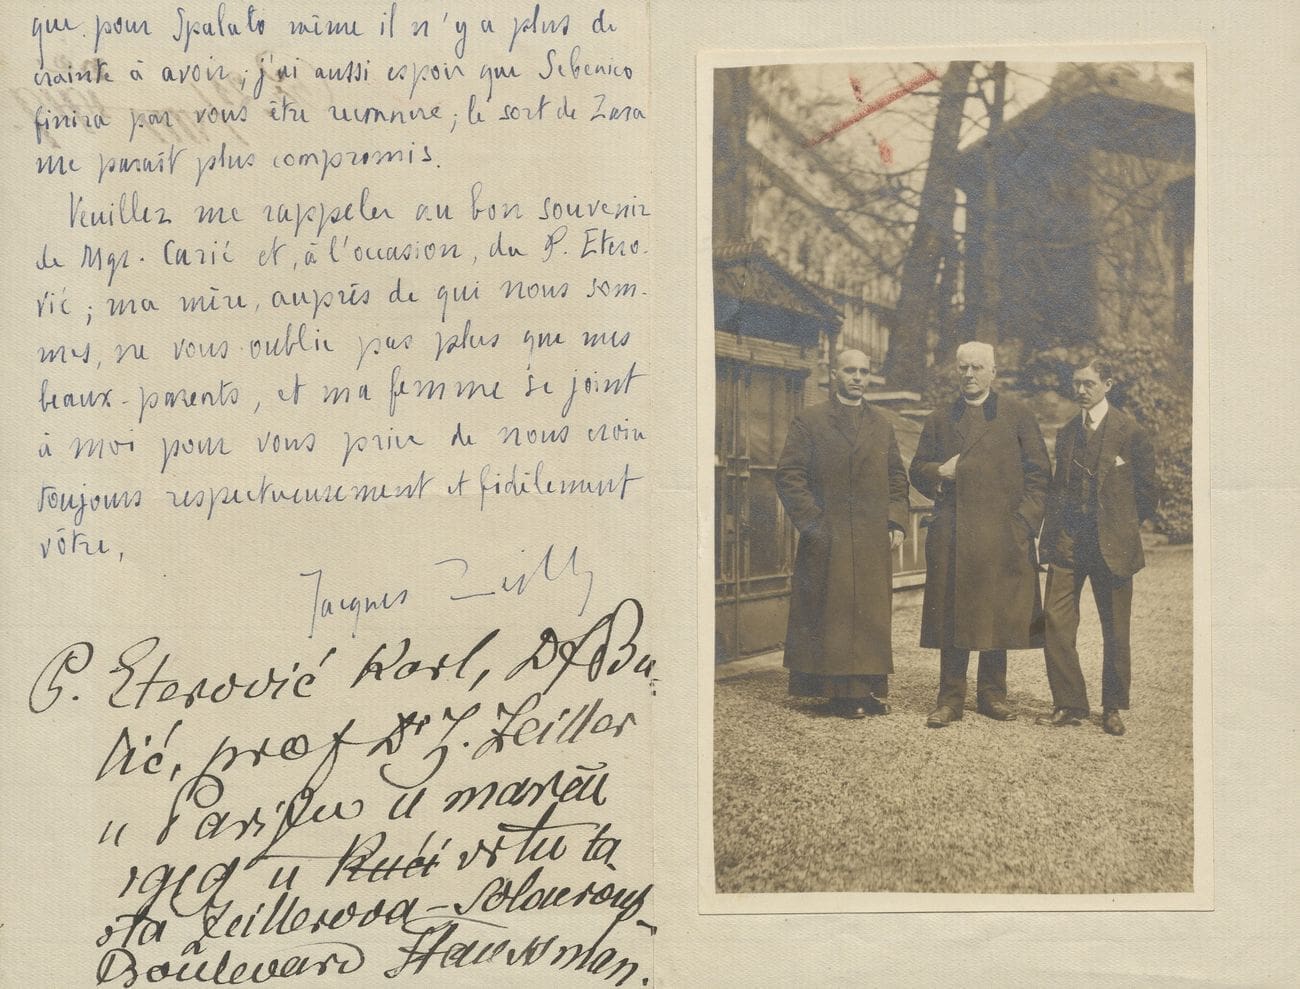 que pour Spalato même il n'y a plus de
crainte à avoir ; j'ai aussi espoir que Sebenico
finira par vous être reconnue ; le sort de Zara
me paraît plus compromis.
Veuillez me rappeler au bon souvenir
de Mgr. Carić et, à l'occasion, du P. Etero-
vić ; ma mère, auprès de qui nous som-
mes, ne vous oublie pas plus que mes
beaux-parents, et ma femme se joint
à moi pour vous prier de nous croire
toujours respectueusement et fidèlement
vôtre,
Jacques Zeiller
P. Eterović Karl, Dr F Bu-
lić, prof Dr J. Zeiller
u Parizu u marču
1919 u kući vrtu ta
sta Zeillerova
Boulevard Haussman.